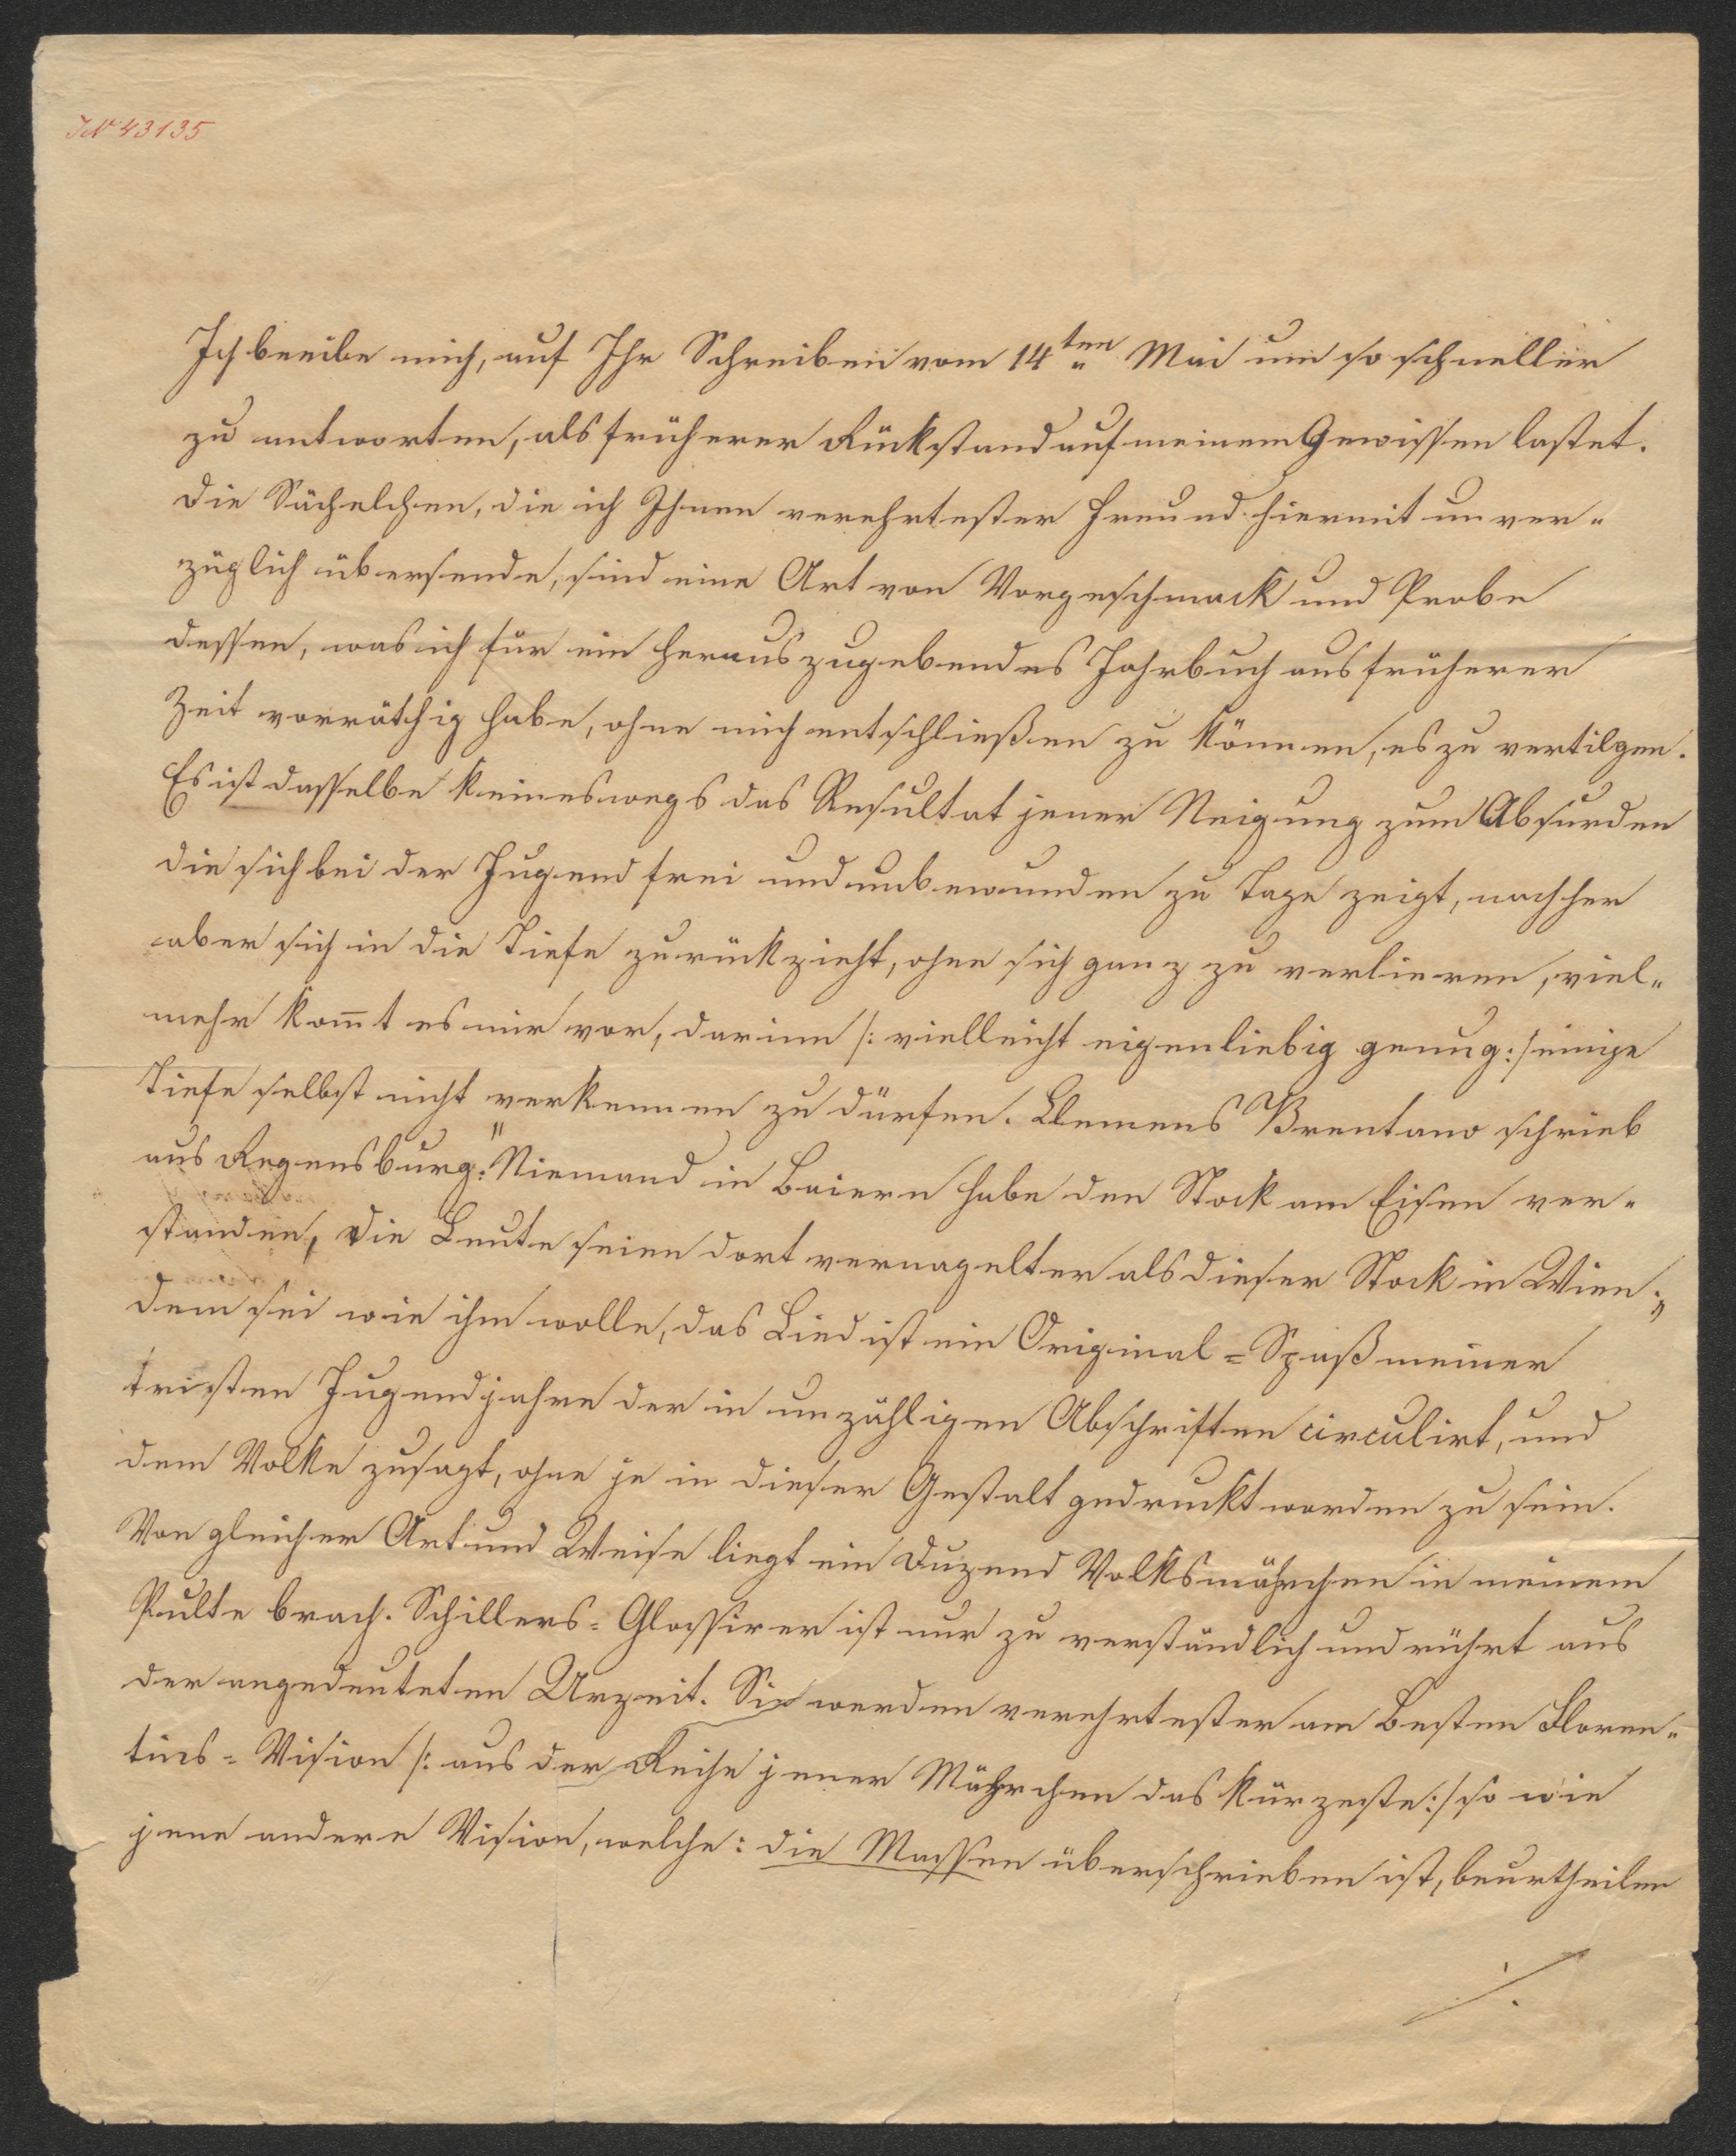 IN 43135
Ich beeile mich, auf Ihr Schreiben vom 14ten Mai um so schneller
zu antworten, als früherer Rückstand auf meinem Gewissen lastet.
Die Sächelchen, die ich Ihnen verehrtester Freund hiermit unver-
züglich übersende, sind eine Art von Vorgeschmack und Probe
dessen, was ich für ein herauszugebendes Jahrbuch aus früherer
Zeit vorräthig habe, ohne mich entschließen zu können, es zu vertilgen.
Es ist dasselbe keineswegs das Resultat jener Neigung zum Absurden
die sich bei der Jugend frei und unbewunden zu Tage zeigt, nachher
aber sich in die Tiefe zurückzieht, ohne sich ganz zu verlieren, viel-
mehr kom̅t es mir vor, darinn /: vielleicht eigenliebig genug :/ einige
Tiefe selbst nicht verkennen zu dürfen. Clemens Brentano schrieb
aus Regensburg: "Niemand in Baiern habe den Stock am Eisen ver-
standen, die Leute seien dort vernagelter als dieser Stock in Wien;"
dem sei wie ihm wolle, das Lied ist ein Original-Spaß meiner
tristen Jugendjahre der in unzähligen Abschriften circulirt, und
dem Volke zusagt, ohne je in dieser Gestalt gedruckt worden zu sein.
Von gleicher Art und Weise liegt ein Duzend Volksmährchen in meinem
Pulte brach. Schillers-Glossirer ist nur zu verständlich und rührt aus
der angedeuteten Urzeit. Sie werden verehrtester am Besten Floren-
tins-Vision /: aus der Reihe jener Mährchen das kürzeste :/ so wie
jene andere Vision, welche: die Massen überschrieben ist, beurtheilen
./.